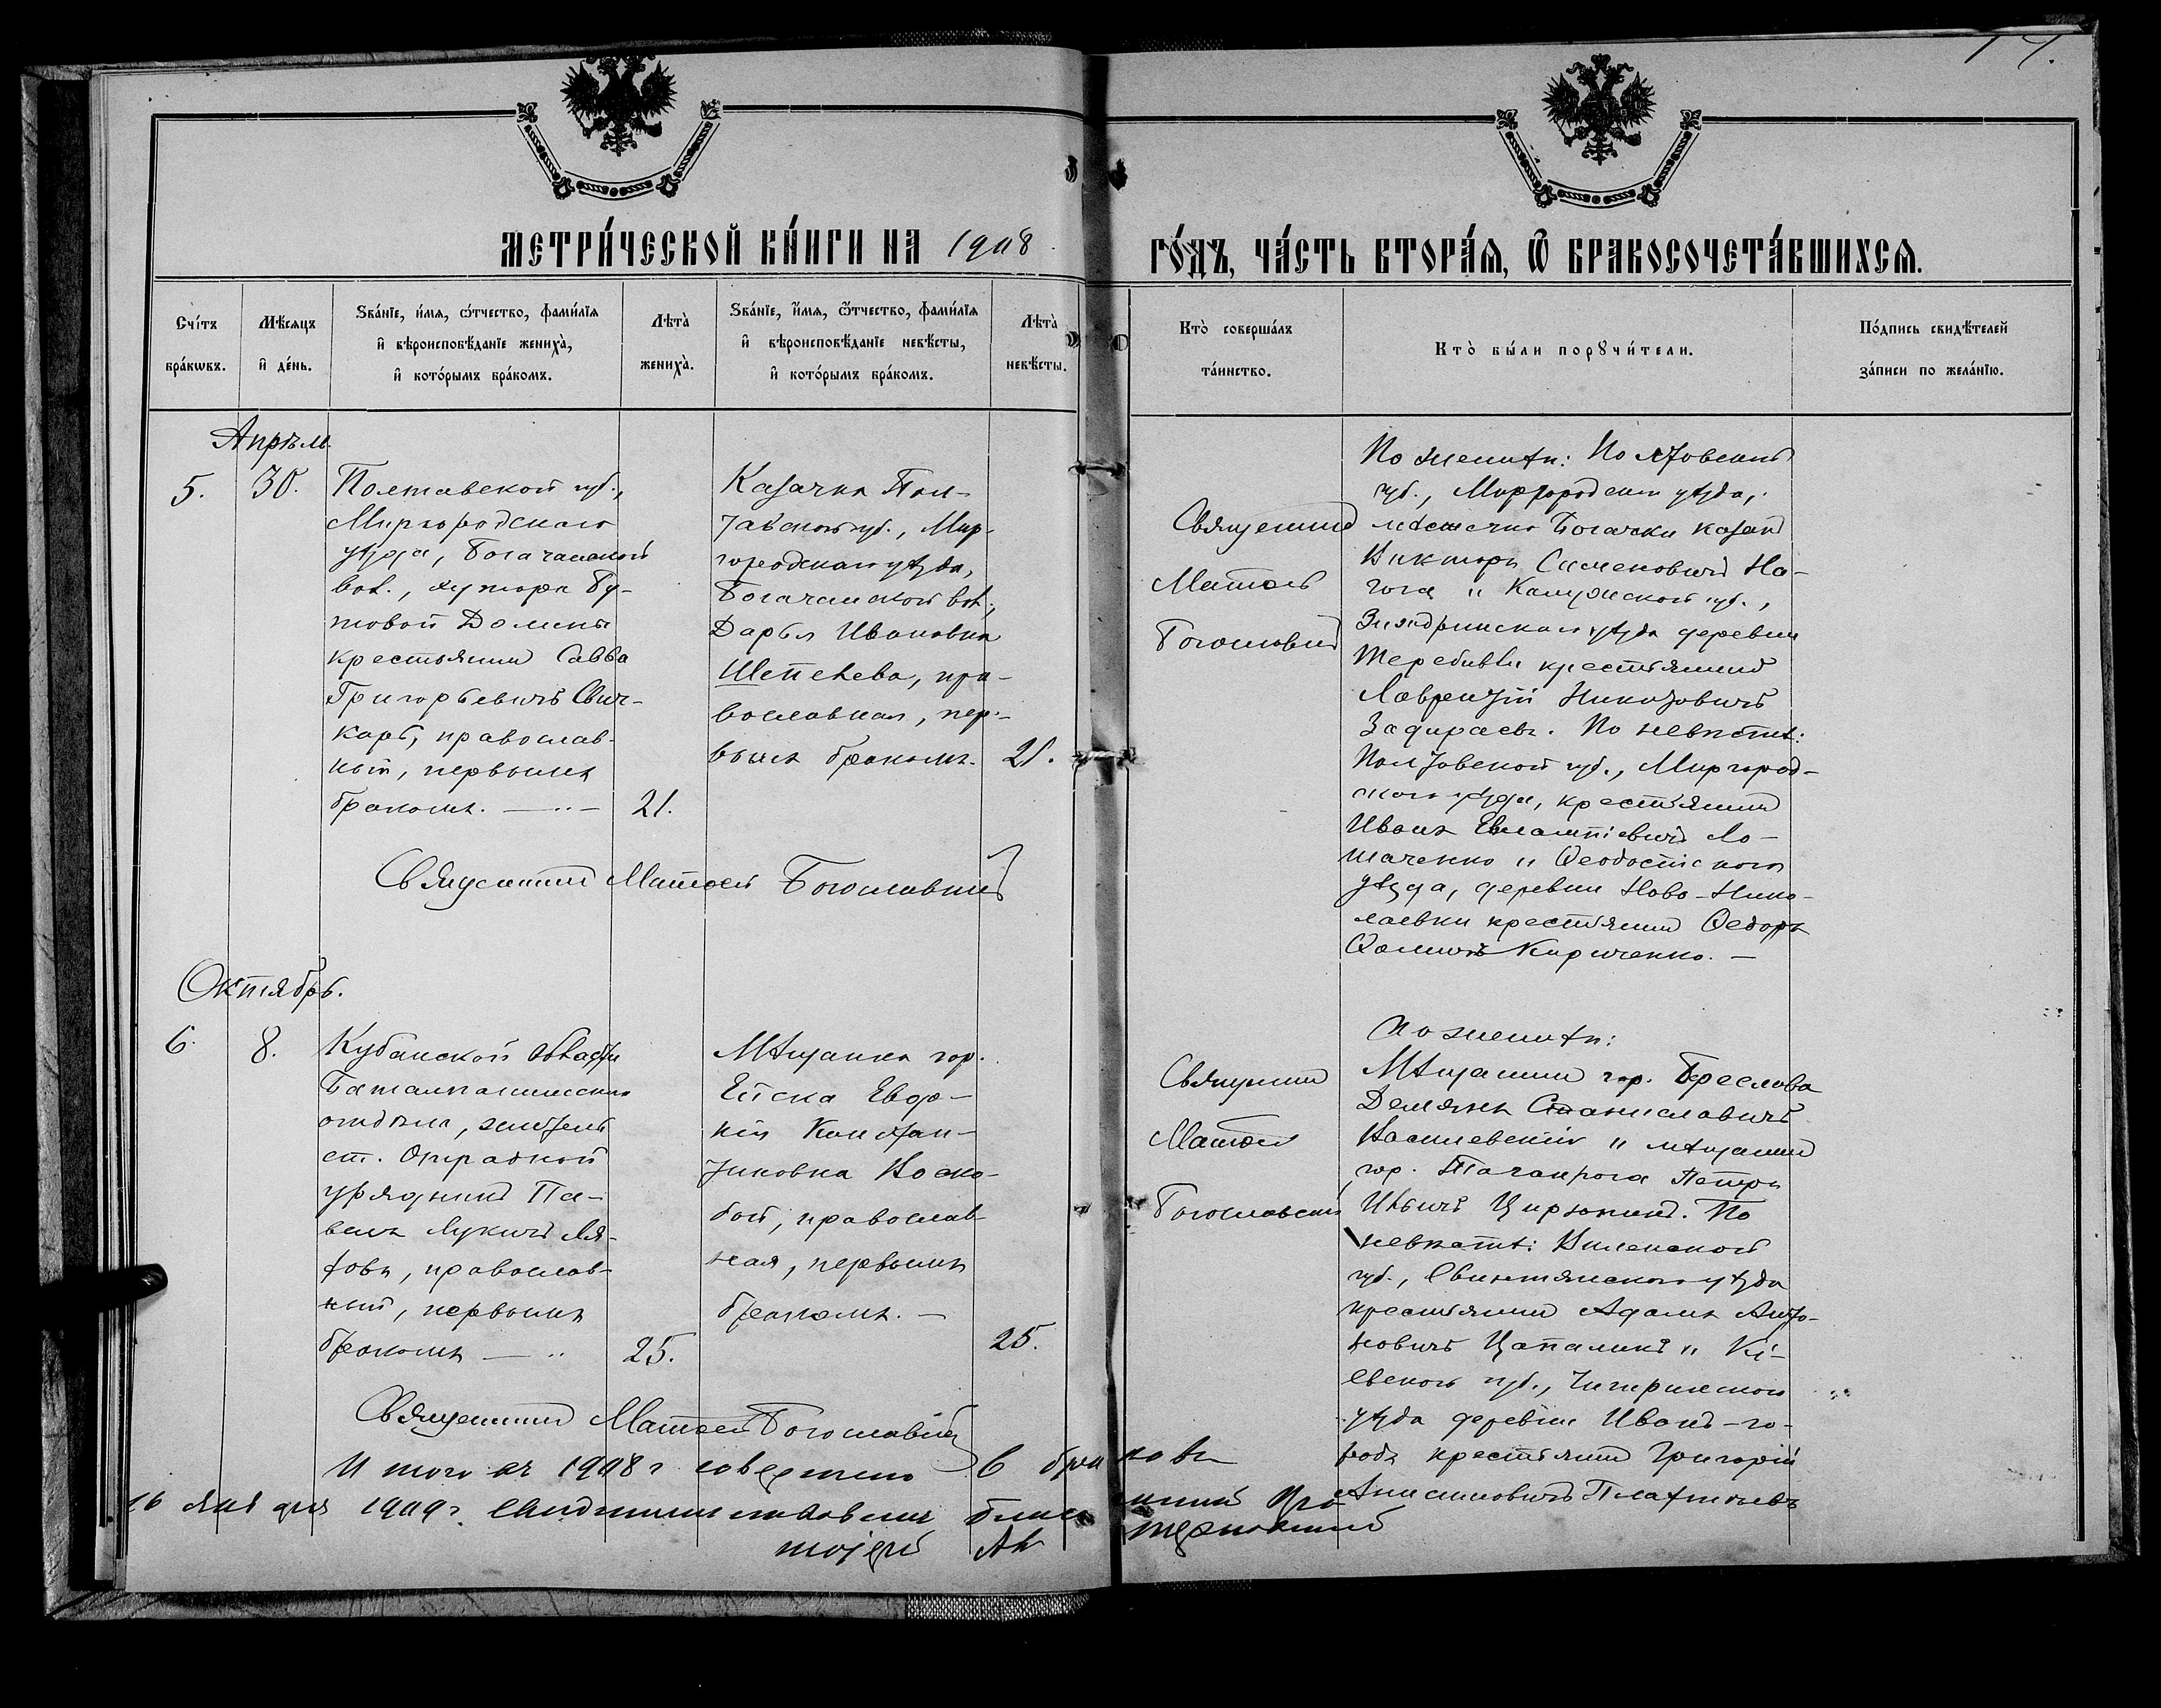 МЕТРИ́ЧЕСКОЙ КНИ́ГИ НА 1908
ГО́ДЪ, ЧА́СТЬ ВТОРА́Я, Ѽ БРАКОСОЧЕТА́ВШИХСЯ.
Сче́тъ бра́кѡвъ.
Мѣ́сяцъ и҆ де́нь.
Ѕва́нїе, и҆́мя, ѻ҆́тчество, фами́лїя
и҆ вѣроисповѣ́данїе жениха̀,
и҆ кото́рымъ бра́комъ.
Лѣта̀ жениха̀.
Ѕва́нїе, и҆́мя, ѻ҆́тчество, фами́лїя
и҆ вѣроисповѣ́данїе невѣ́сты,
и҆ кото́рымъ бра́комъ.
Лѣта̀ невѣ́сты.
Кто̀ соверша́лъ та́инство.
Кто̀ бы́ли порꙋчи́тели.
По́дпись свидѣ́телей за́писи по жела́нїю.
Апрѣль
5.
30.
Полтавской губ.,
Миргородскаго
уѣзда, Богачанской
вол., хутора Бу-
товой Долины
крестьянинъ Савва
Григорьевичъ Свич-
карь, православ-
ный, первымъ
бракомъ.
21.
Казачка Пол-
тавской губ., Мир-
городскаго уѣзда,
Богачанской вол.,
Дарья Ивановна
Шепелева, пра-
вославная, пер-
вымъ бракомъ.
21.
Священникъ
Матѳей
Богословскій
По женихѣ: Полтавской
губ., Миргородскаго уѣзда,
мѣстечка Богачки казакъ
Викторъ Семеновичъ На-
гога и Калужской губ.,
Жиздринскаго уѣзда деревни
Теребивли крестьянинъ
Лаврентій Никитовичъ
Задираевъ. По невѣстѣ:
Полтавской губ., Миргород-
скаго уѣзда, крестьянинъ
Иванъ Евлампіевичъ Ло-
шаченко и Ѳеодосійскаго
уѣзда, деревни Ново-Нико-
лаевки крестьянинъ Ѳедоръ
Ѳомичъ Кириченко.
Священникъ Матѳей Богословскій
Октябрь.
6.
8.
Кубанской области
Баталпашинскаго
отдѣла, житель
ст. Отрадной
урядникъ Па-
велъ Лукичъ Ля-
ховъ, православ-
ный, первымъ
бракомъ
25.
Мѣщанка гор.
Ейска Евдо-
кія Констан-
тиновна Коско-
бой, православ-
ная, первымъ
бракомъ.
25.
Священникъ
Матѳей
Богословскій
По женихѣ:
Мѣщанинъ гор. Бреслова
Демьянъ Станиславичъ
Василевскій и мѣщанинъ
гор. Таганрога Петръ
Ильичъ Цирюкинъ. По
невѣстѣ: Виленской
губ., Свинтянскаго уѣзда
крестьянинъ Адамъ Анто-
новичъ Цапаликъ и Кі-
евской губ., Чигиринскаго
уѣзда деревни Иванъ-го-
рода крестьянинъ Григорій
Анисимовичъ Плахтіевъ
Священникъ Матѳей Богословскій
Итого въ 1908 г совершено 6 браковъ
16 января 1909 г. Свидѣтельствовалъ